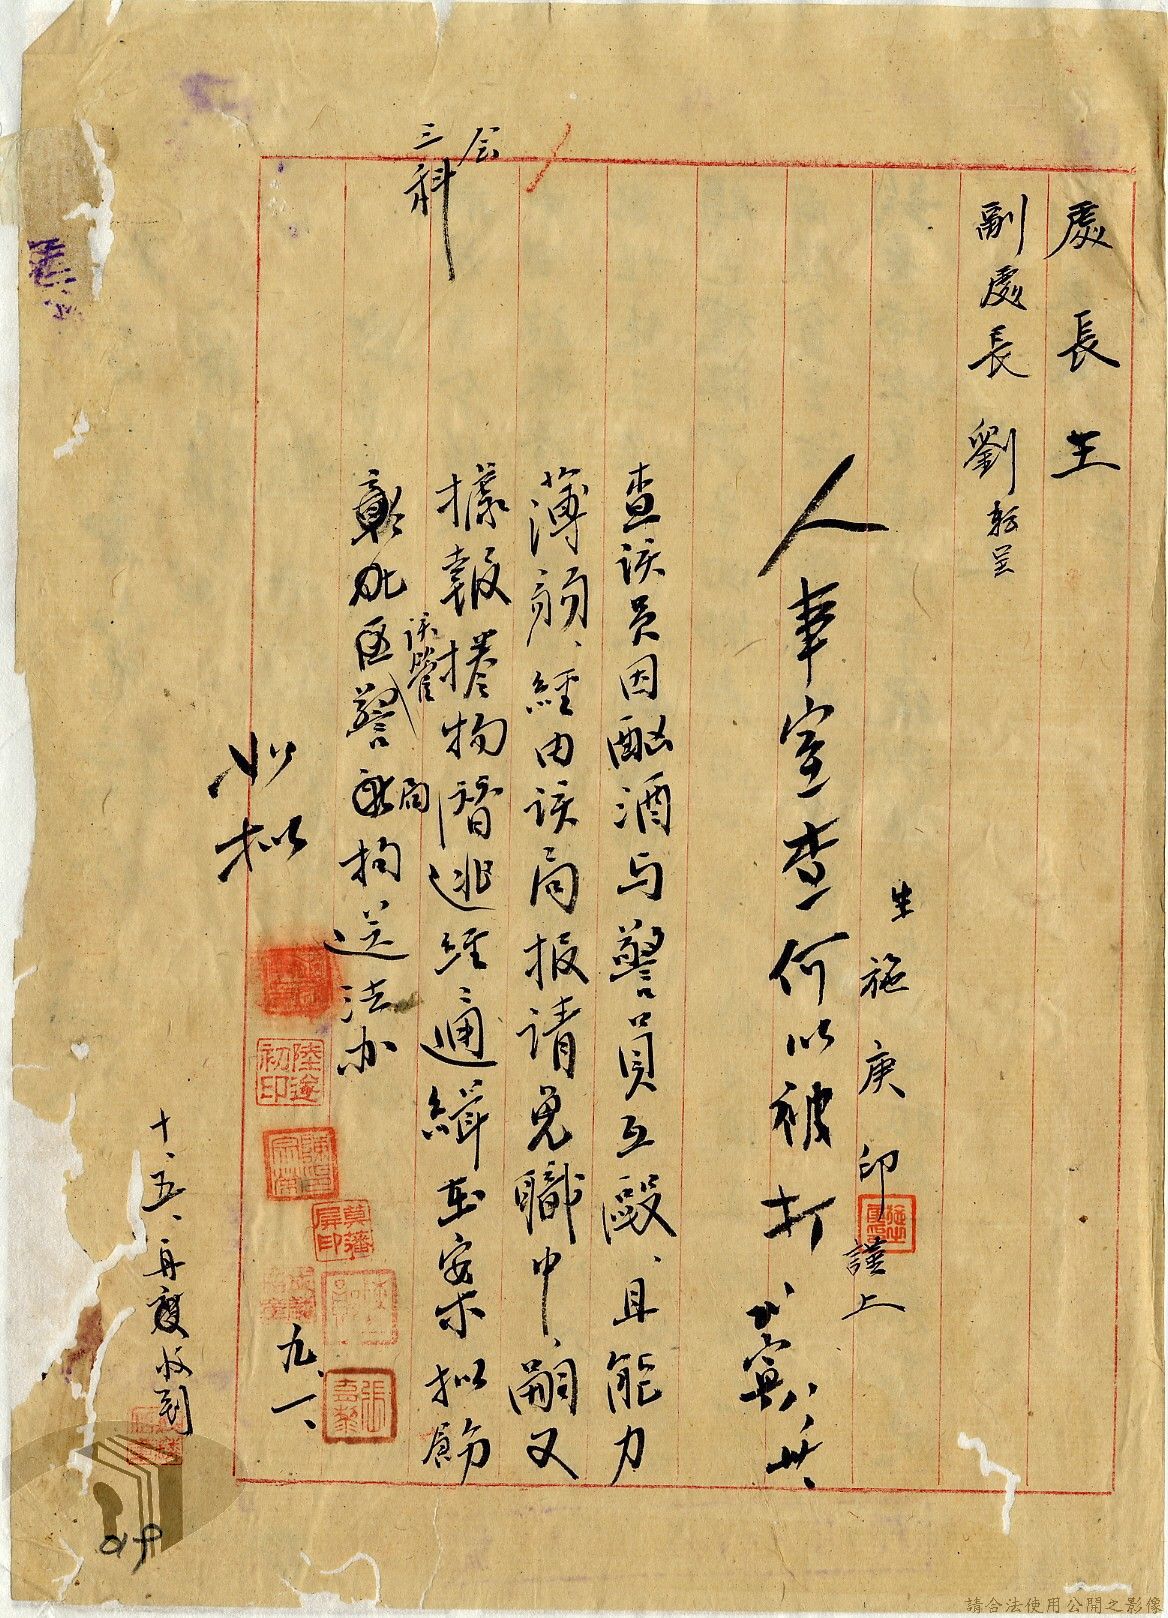 處長王
副處長劉轉呈
生施庚印謹上
人事室查何以被打
查該員因酗酒与警員互毆、且能力
薄弱、經由該局报请免職中、嗣又
據報捲物潛逃經通緝在案擬飭
該管
彰化區警局拘送法办
会
三科
如擬
陸遂初印
莫蕃屏印
九、一、
十、五、再度收到
請合法使用公開之影像